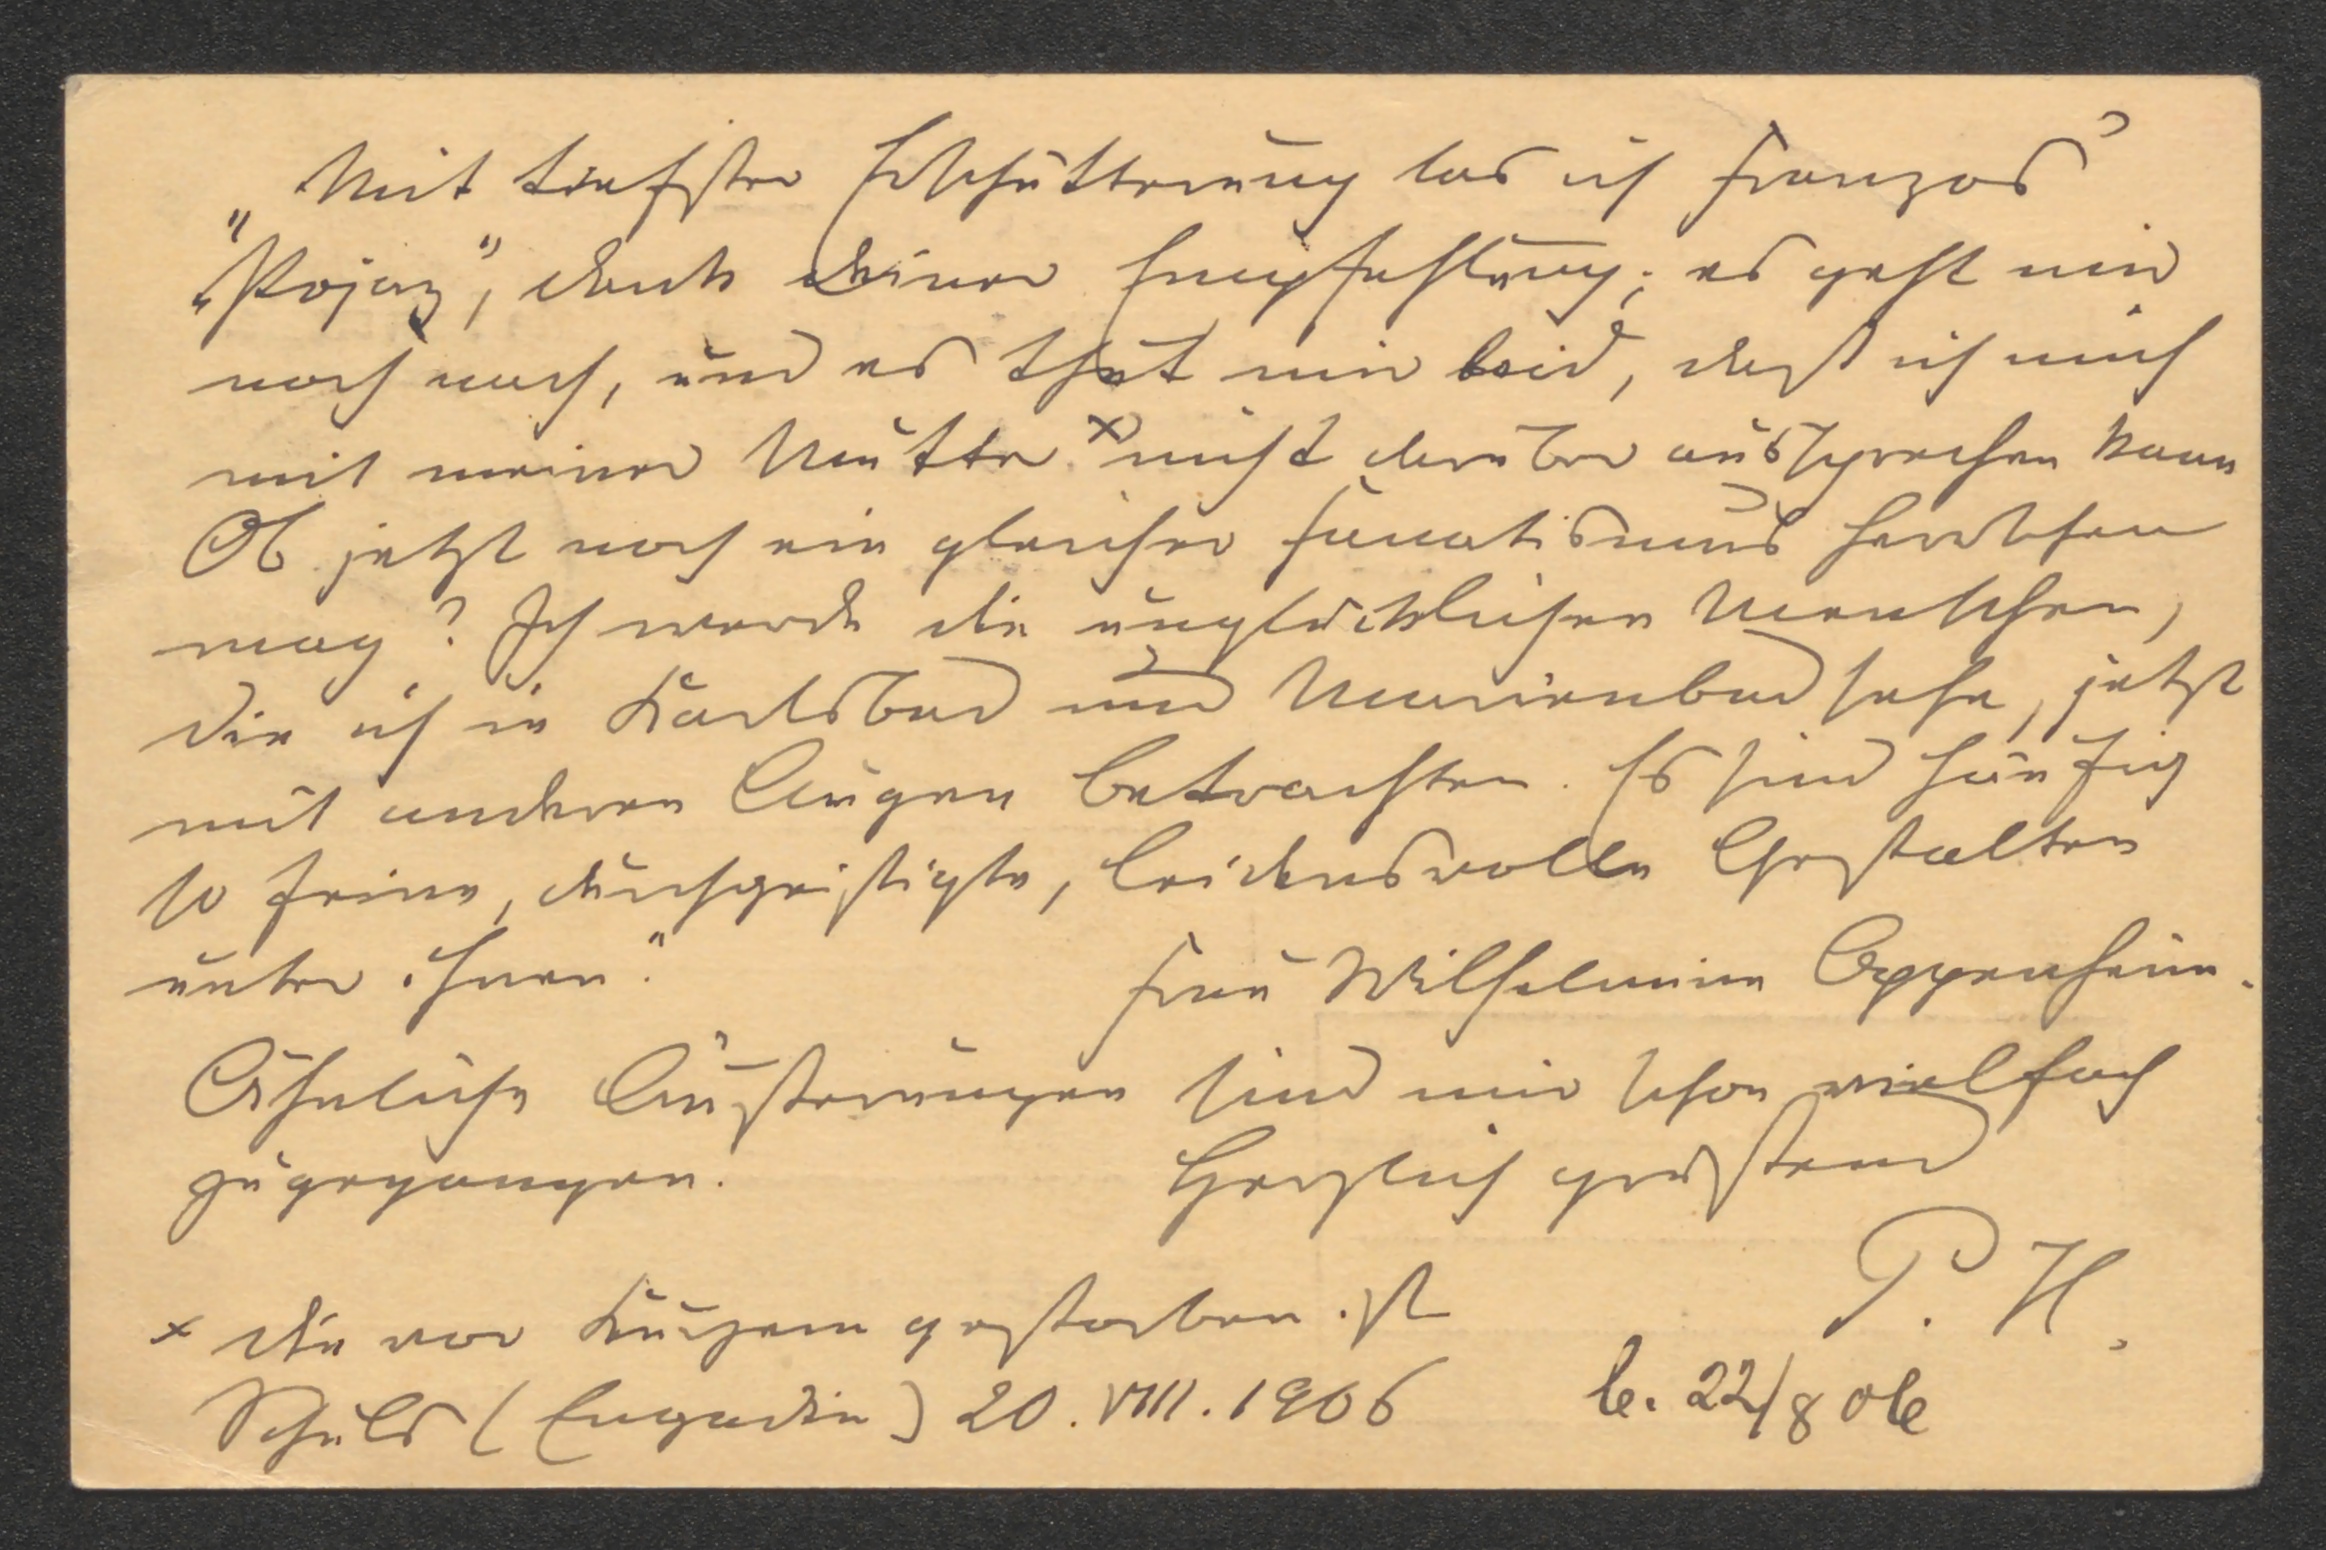 „Mit tiefster Erschütterung las ich Franzos'
„Pojaz“, dank Deiner Empfehlung; es geht mir
noch nach, und es thut mir leid, daß ich mich
mit meiner Mutter × nicht darüber aussprechen kann
Ob jetzt noch ein gleicher Fanatismus herrschen
mag? Ich werde die unglücklichen Menschen,
die ich in Karlsbad und Marienbad sehe, jetzt
mit anderen Augen betrachten. Es sind häufig
so feine, durchgeistigte, leidensvolle Gestalten
unter ihnen.“ Frau Wilhelmine Oppenheim.
Ähnliche Äußerungen sind mir schon vielfach
zugegangen. Herzlich grüßend
P. H.
× die vor Kurzem gestorben ist
Schuls (Engadin) 20. VIII. 1906 b. 22/8 06